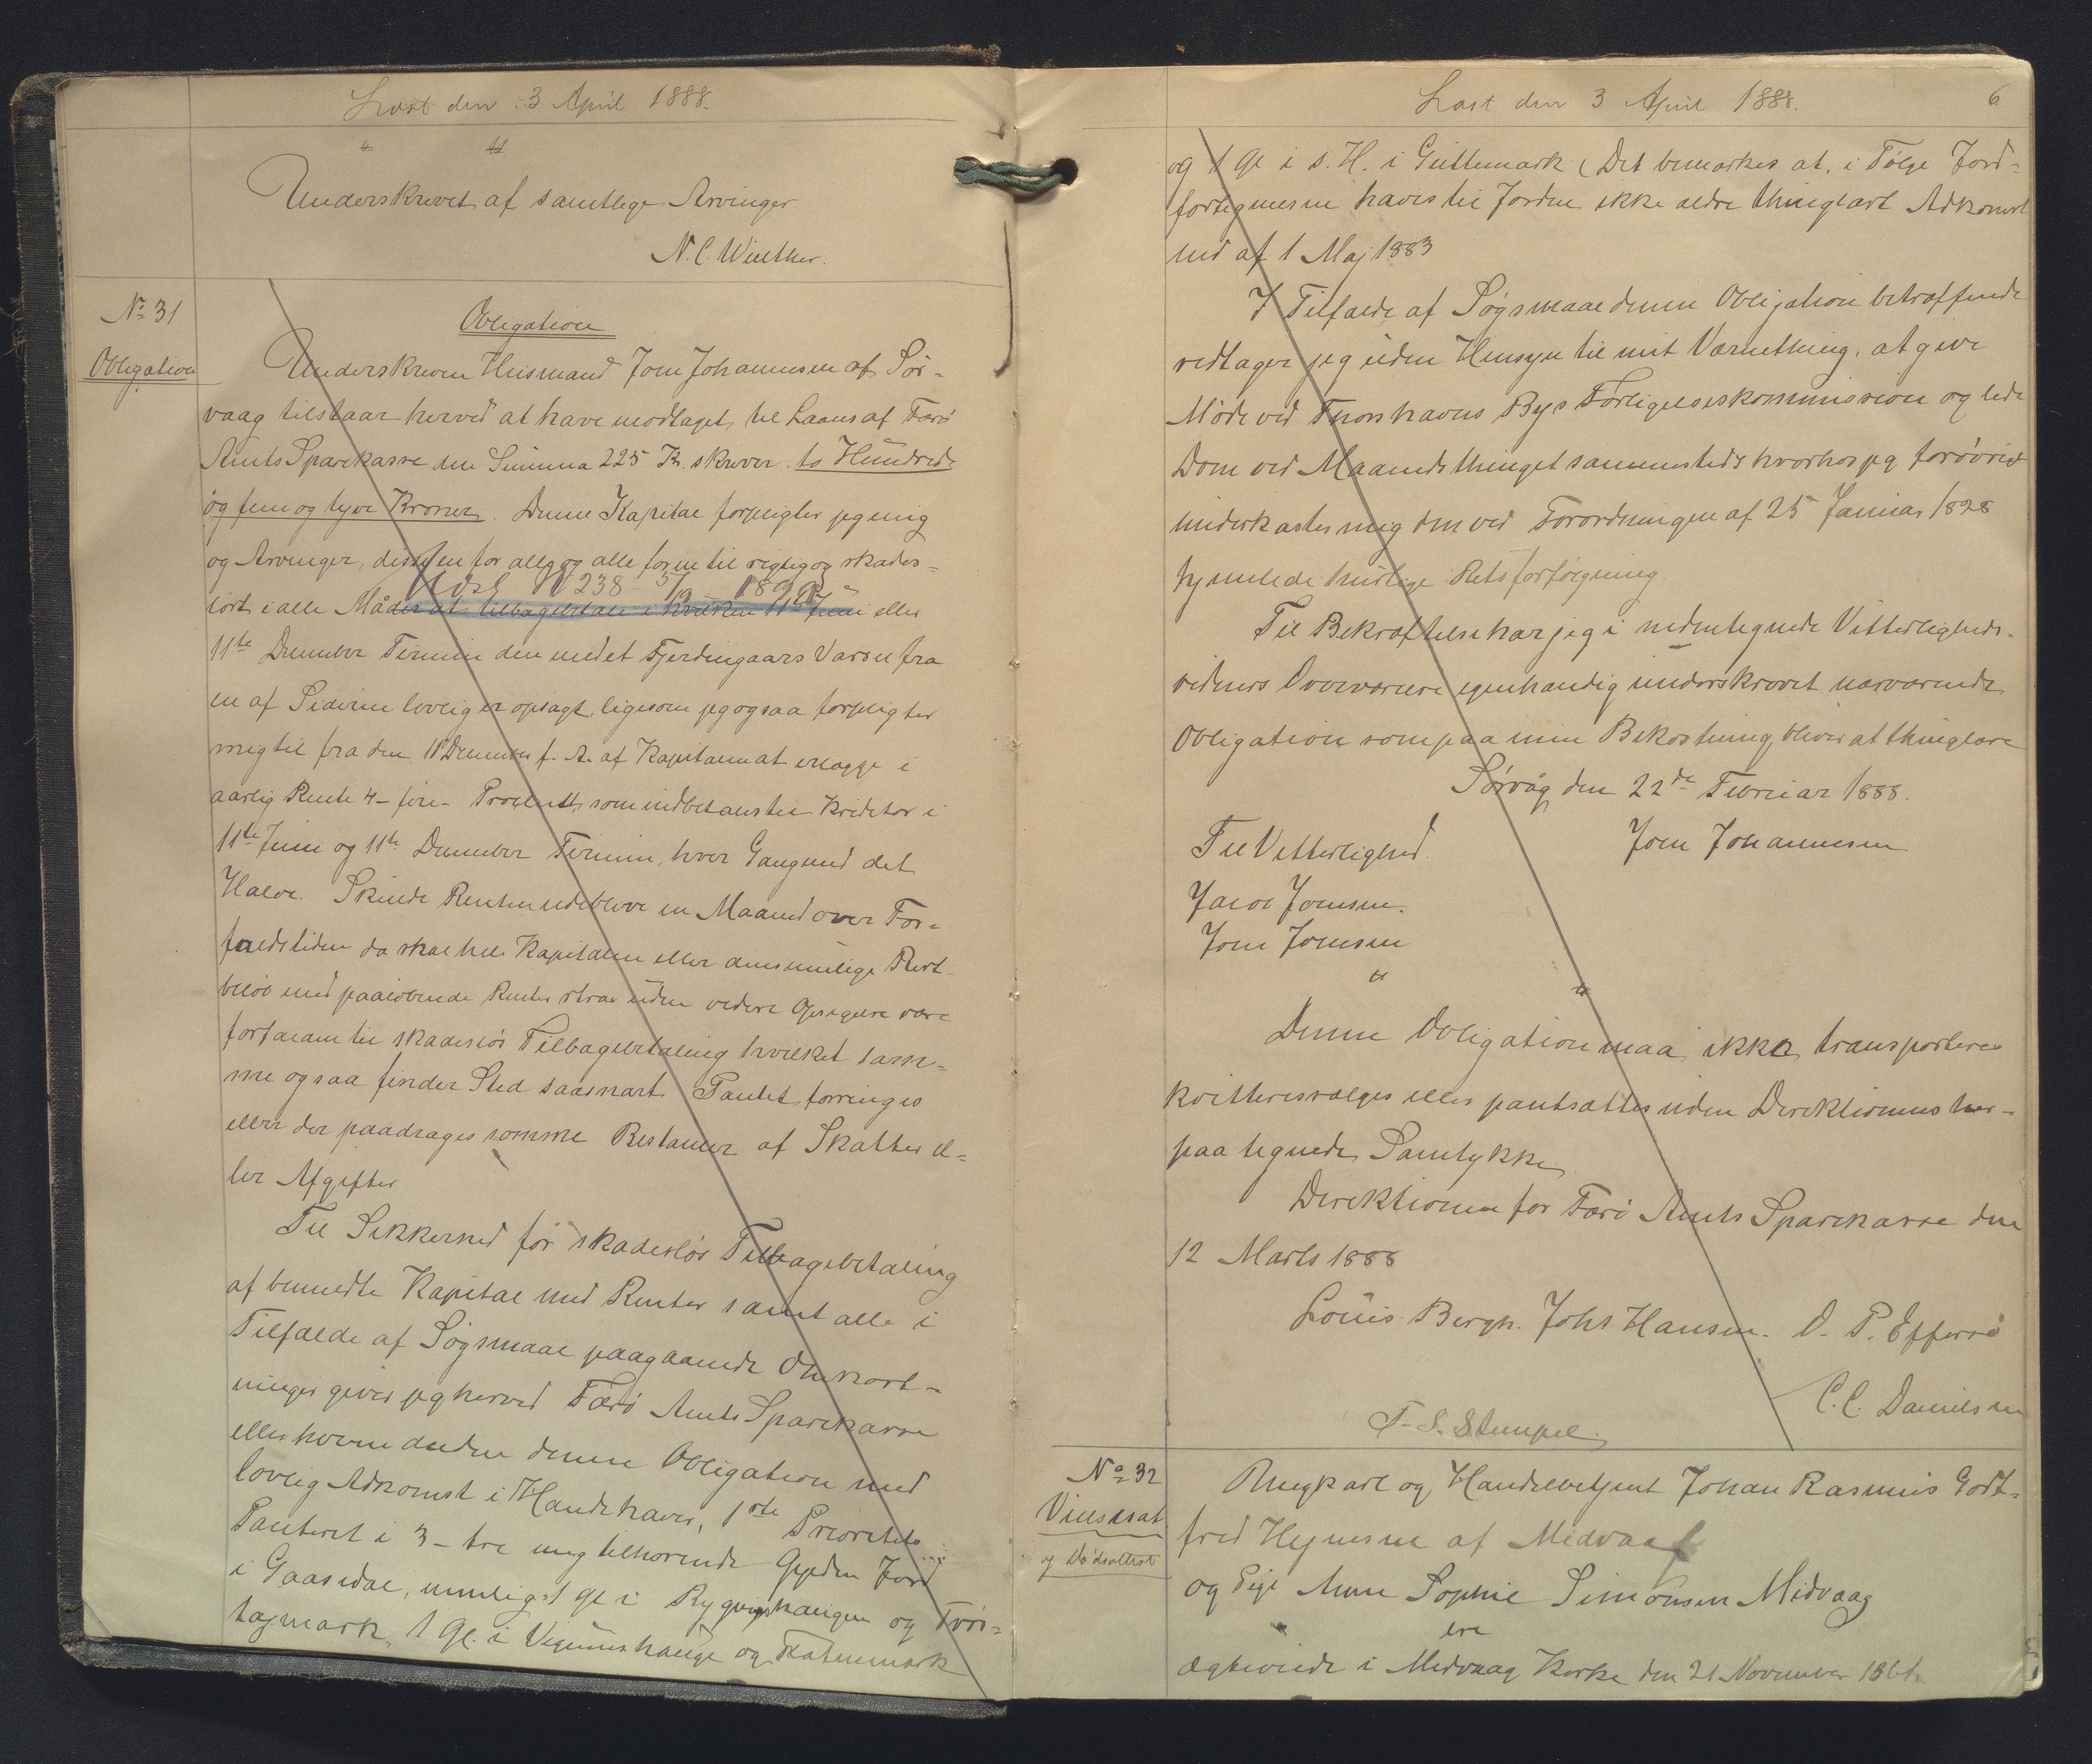 Læst den 3 April 1888.
" "
Underskrevet af samtlige Arvinger
N. C. Winther.
No 31
Obligation
Obligation
Underskreven Husmand Joen Johannesen af Sör-
vaag tilstaar herved at have modtaget til Laans af Færö
Amts Sparekasse den Summa 225 Kr. skriver to Hundrede
og fem og tyve Kroner. Denne Kapital forpligter jeg mig
og Arvinger, disse en for alle og alle for en til rigtig og skades-
Udsl 238 5/12
löst i alle Måder at tilbagebetale i hvilken 11te Juni eller
11te December Termin den med et Fjerdingaars Varsel fra
en af Siderne lovlig er opsagt, ligesom jeg ogsaa forpligter
mig til fra den 11 December f. A. af Kapitalen at erlægge i
aarlig Rente 4 - fire - Procent, som indbetales til Kreditor i
11te Juni og 11te December Termin, hver Gang med det
Halve. Skulde Renten udeblive en Maaned over For-
faldstiden da skal hele Kapitalen eller dens mulige Rest-
belöb med paalöbende Renter strax uden videre Opsigelse være
forfalden til skadeslös Tilbagebetaling hvilket sam-
me ogsaa finder Sted saasnart Pantet forringes
eller der paadrages samme Restancer af Skatter el-
ler Afgifter
Til Sikkerhed for skadeslös Tilbagebetaling
af bemeldte Kapital med Renter samt alle i
Tilfælde af Sögsmaal paagaaende Omkost-
ninger giver jeg herved Færö Amts Sparekasse
eller hvem der den denne Obligation med
lovlig Adkomst i Hænde haver, 1ste Prioritets
Panteret i 3 - tre mig tilhörende Gylden Jord
i Gaasedal, nemlig: 1 Gl i Rygvigshaugen og Tvör-
tagmark, 1 Gl. i Vigumshauge og Flatnemark
Læst den 3 April 1888.
6
og 1 Gl i s. H. i Guttemark (Det bemærkes at, i Fölge Jord-
fortegnelsen haves til Jorden ikke ældre thinglæst Adkomst
end af 1 Maj 1883
I Tilfælde af Sögsmaal denne Obligation betræffende
vedtager jeg uden Hensyn til mit Værnething, at give
Möde ved Thorshavns Bys Forligelseskommission og lide
Dom ved Maanedsthinget sammesteds hvorhos jeg forövrigt
underkaster mig den ved Forordningen af 25 Januar 1828
hjemlede hurtige Retsforfölgning.
Til Bekræftelse har jeg i nedentegnede Vitterligheds-
vidners Overværelse egenhændig underskrevet nærværende
Obligation som paa min Bekostning bliver at thinglæse
Sörvåg, den 22de Februar 1888.
Til Vitterlighed. Joen Johannesen
Jacob Joensen.
Joen Joensen
" "
Denne Obligation maa ikke transporteres
kvitteres sælges eller pantsættes uden Direktionens her-
paa tegnede Samtykke
Direktionen for Færö Amts Sparekasse den
12 Marts 1888
Louis Bergh. Johs Hansen. O. P. Effersö
C. C. Danielsen
F. S. Stempel.
No 32
Vielses at
og Dödsattest
Ungkarl og Handelsbetjent Johan Rasmus Gott-
fred Hejnesen af Midvaag
og Pige Anna Sophie Simonsen Midvaag
ere
ægteviede i Midvaag Kirke den 21 November 1861